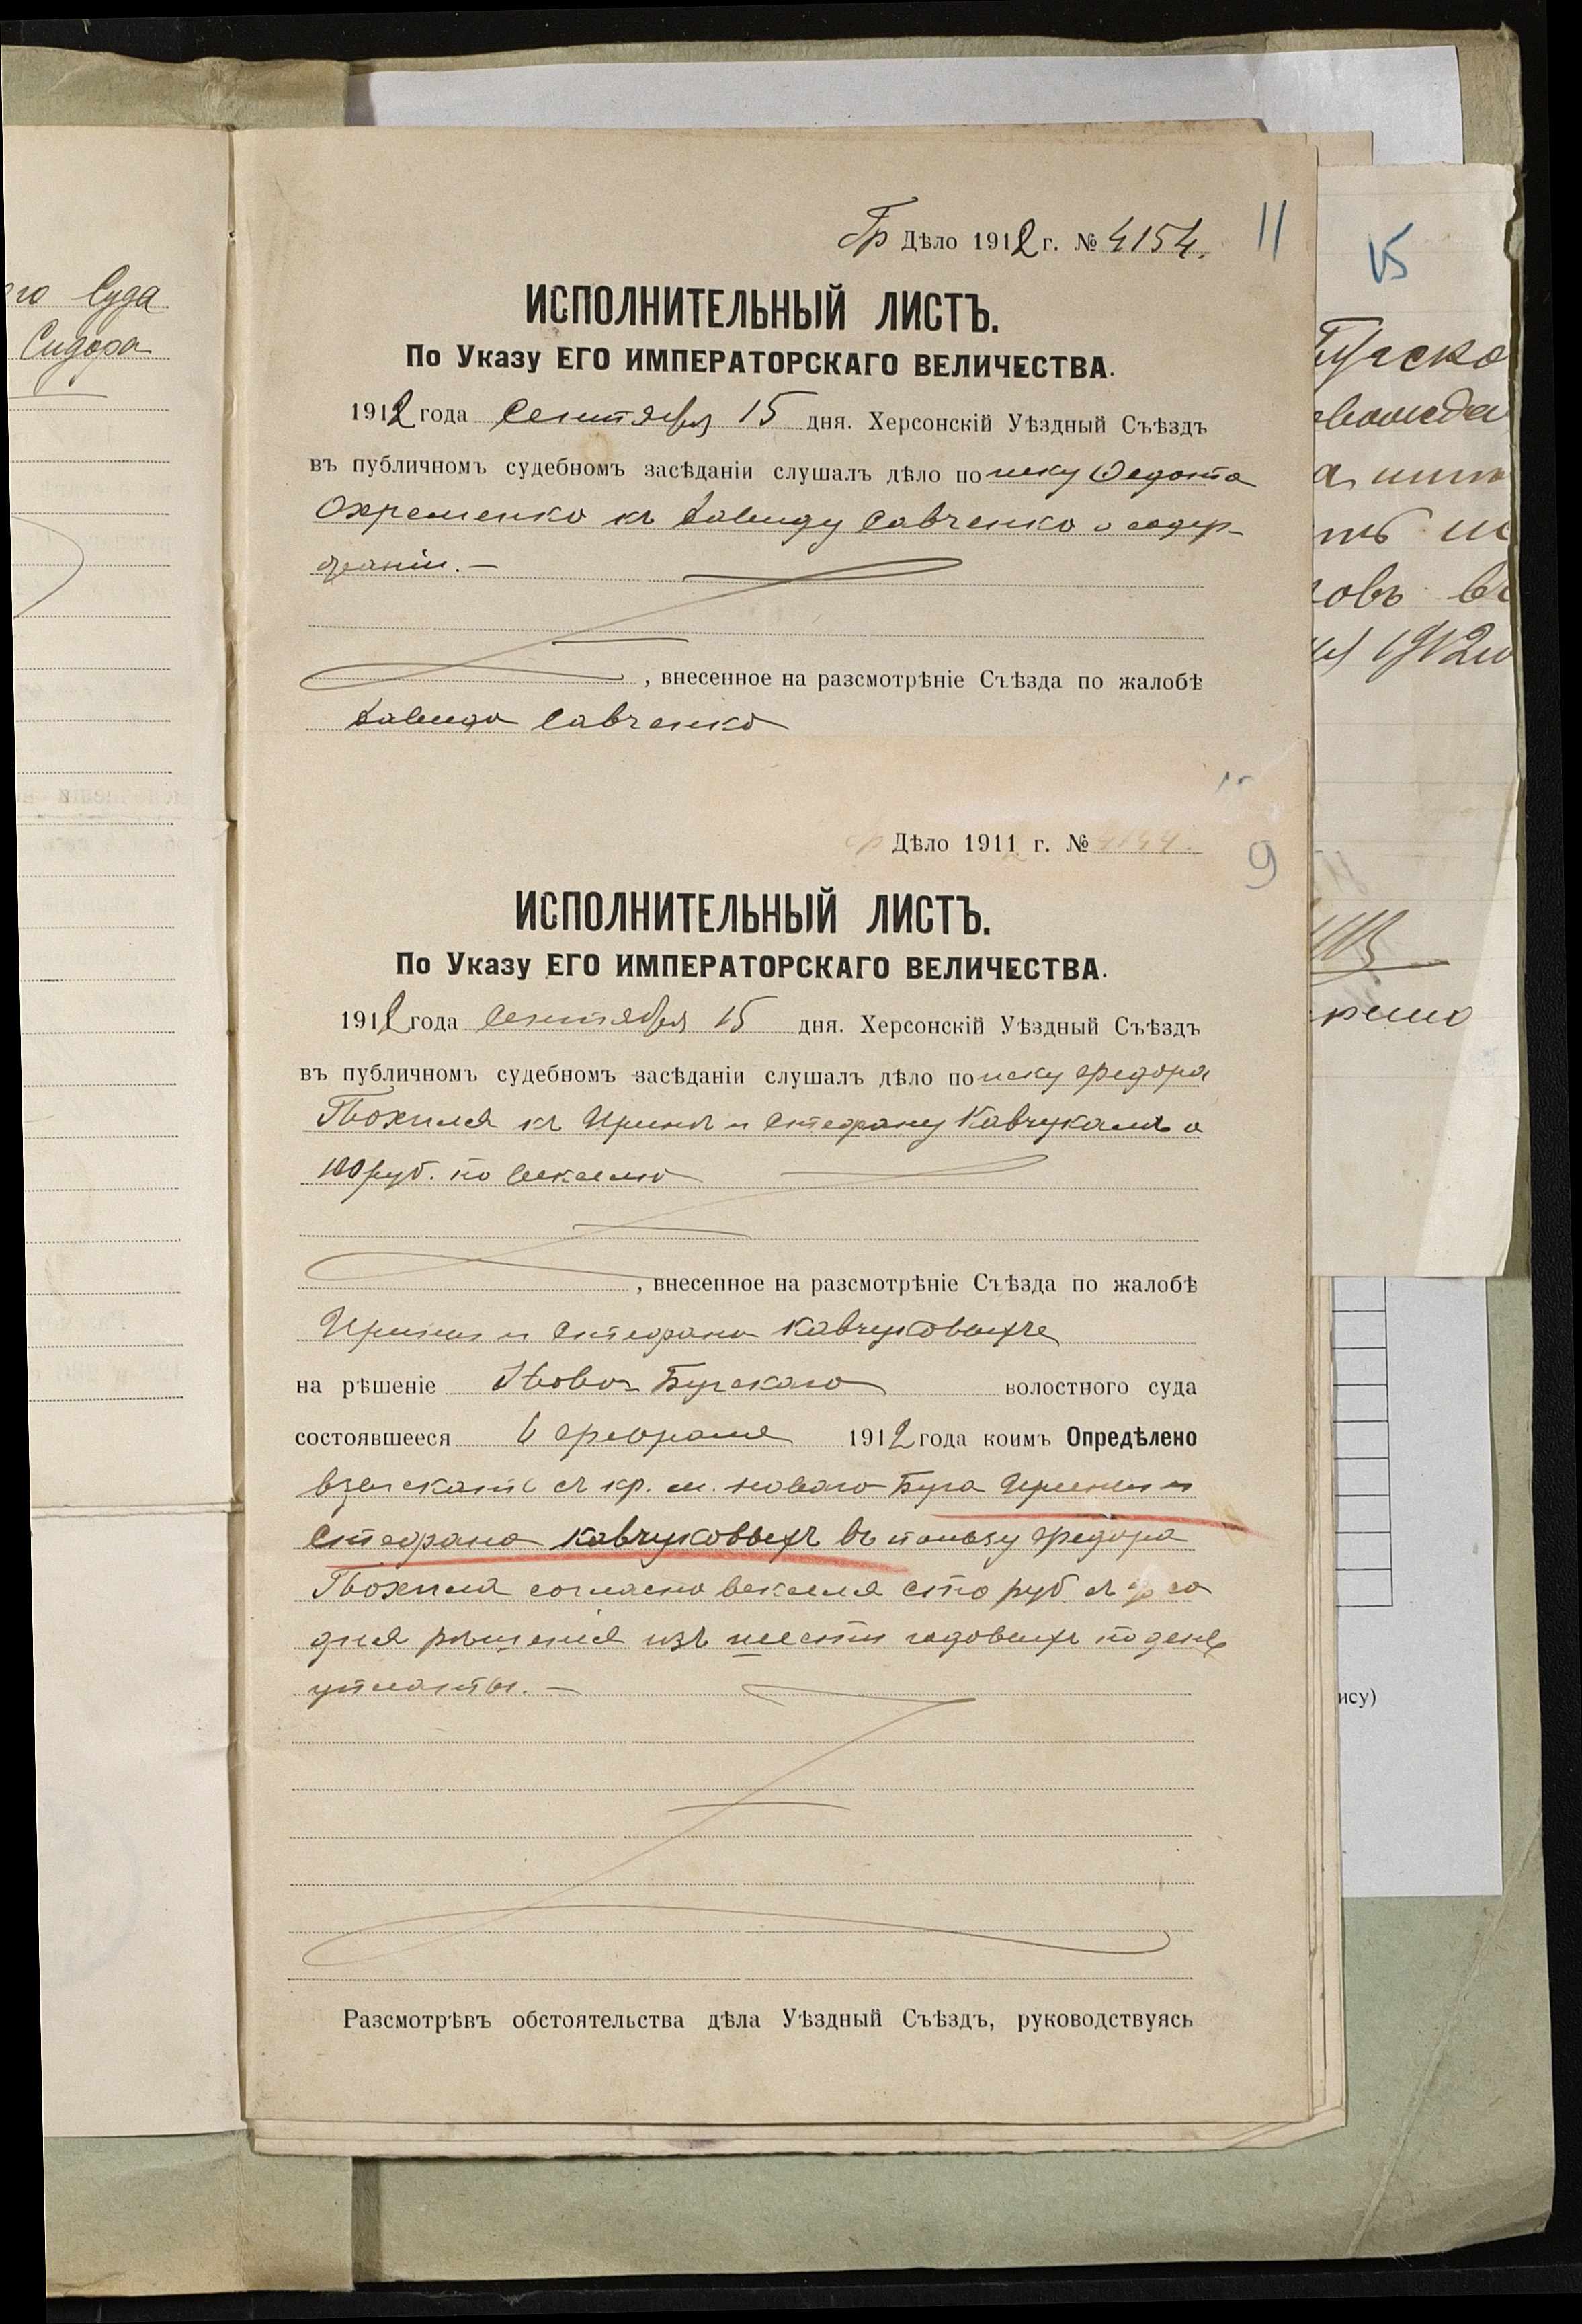 го Суда
Сидора
Гр Дѣло 1912 г. № 4154.
11
ИСПОЛНИТЕЛЬНЫЙ ЛИСТЪ.
По Указу ЕГО ИМПЕРАТОРСКАГО ВЕЛИЧЕСТВА.
1912 года Сентября 15 дня. Херсонскій Уѣздный Съѣздъ
въ публичномъ судебномъ засѣданіи слушалъ дѣло по иску Ѳедота
Охременко къ Давиду Савченко о содер-
жаніи.—
, внесенное на разсмотрѣніе Съѣзда по жалобѣ
Давида Савченко
гр Дѣло 1911 г. №
9
ИСПОЛНИТЕЛЬНЫЙ ЛИСТЪ.
По Указу ЕГО ИМПЕРАТОРСКАГО ВЕЛИЧЕСТВА.
1912 года Сентября 15 дня. Херсонскій Уѣздный Съѣздъ
въ публичномъ судебномъ засѣданіи слушалъ дѣло по иску Федора
къ Иринѣ и Стефану Кавчукамъ о
100 руб. по векселю
, внесенное на разсмотрѣніе Съѣзда по жалобѣ
Ирины и Стефана Кавчуковыхъ
на рѣшеніе Ново-Бугскаго волостного суда
состоявшееся 6 февраля 1912 года коимъ Опредѣлено
взыскать съ кр. м. Новаго Буга Ирины и
Стефана Кавчуковыхъ въ пользу Федора
согласно векселя сто руб. съ % со
дня рѣшенія изъ шести годовыхъ по день
уплаты.—
Разсмотрѣвъ обстоятельства дѣла Уѣздный Съѣздъ, руководствуясь
15
Бугско
овъ въ
1912 го
ису)